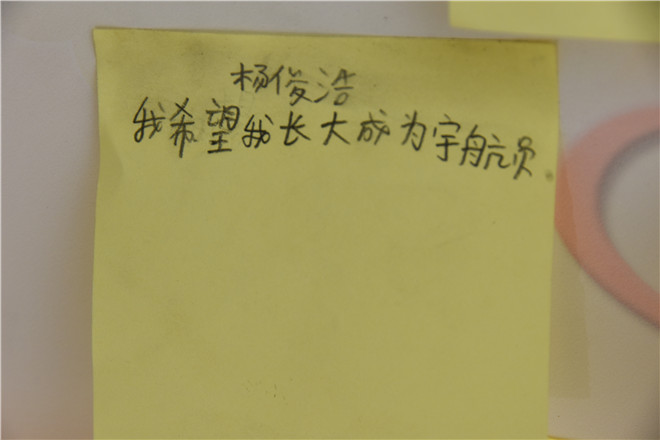 杨俊浩
我希望我长大成为宇航员.